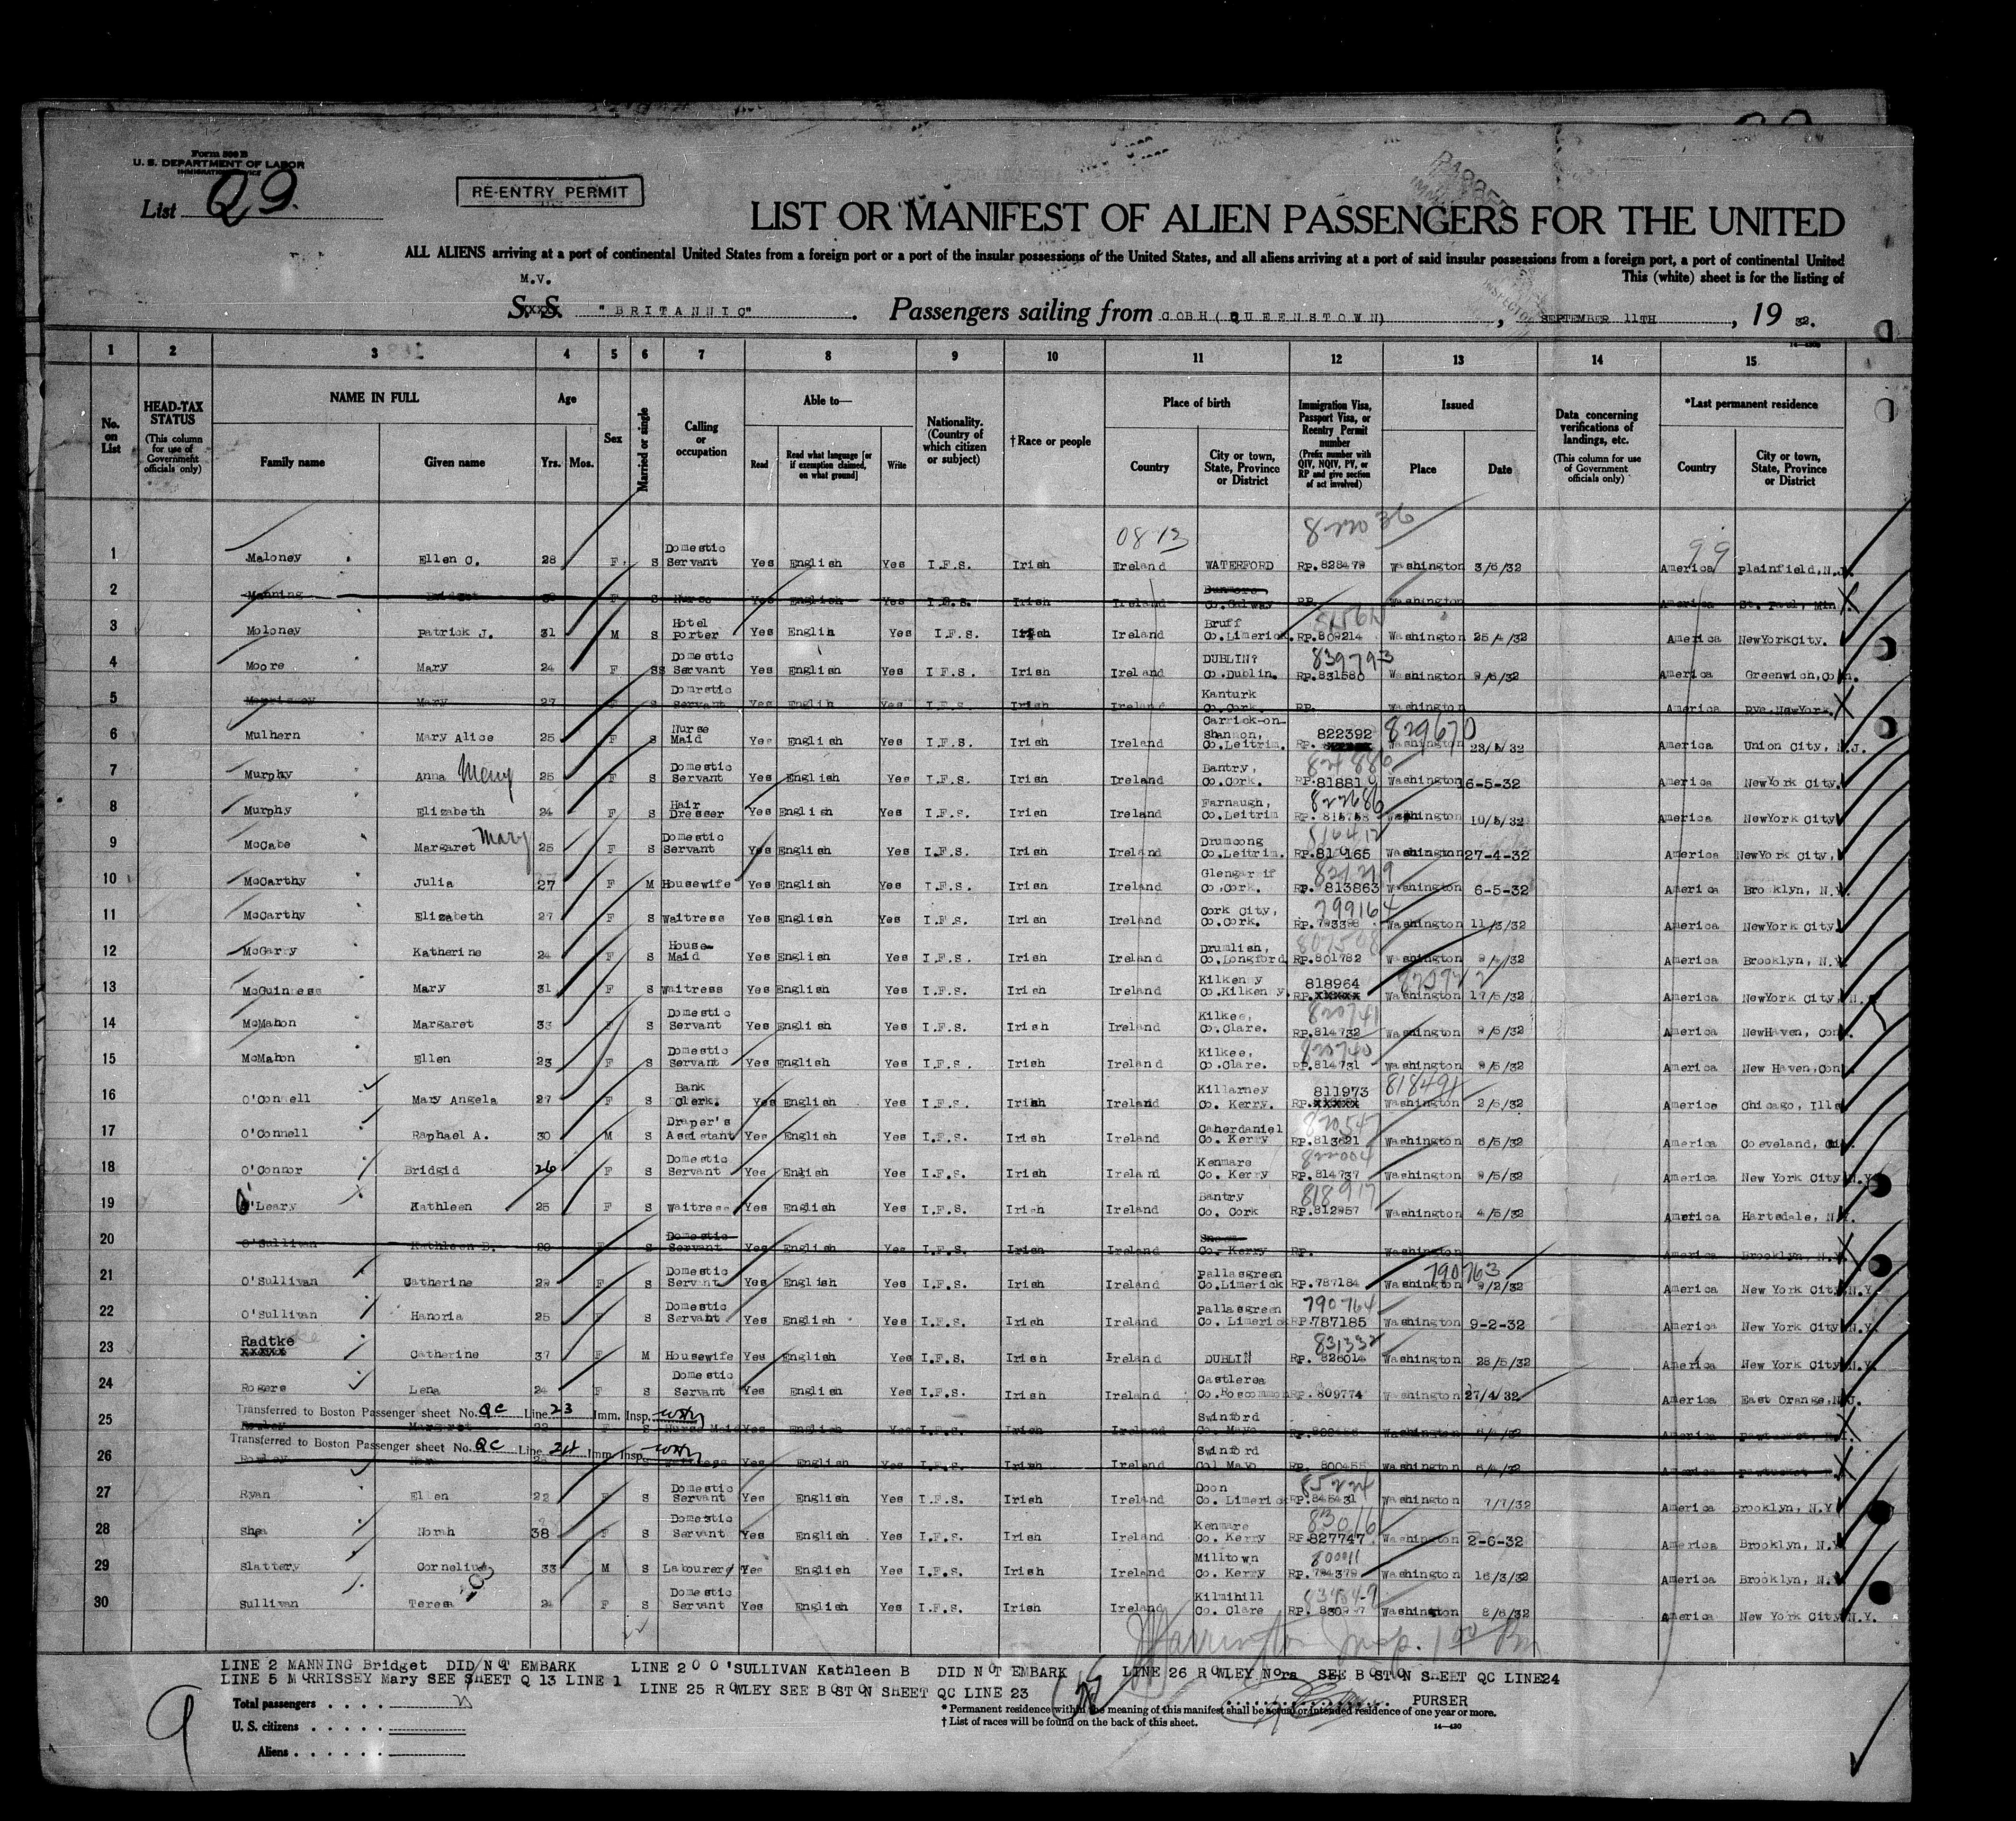 Form 500 B
U. S. DEPARTMENT OF LABOR
IMMIGRATION SERVICE
List Q9.
RE-ENTRY PERMIT
LIST OR MANIFEST OF ALIEN PASSENGERS FOR THE UNITED
ALL ALIENS arriving at a port of continental United States from a foreign port or a port of the insular possessions of the United States, and all aliens arriving at a port of said insular possessions from a foreign port, a port of continental United
This (white) sheet is for the listing of
M.V.
S. S. "BRITANNIC". Passengers sailing from COBH(QUEENSTOWN), SEPTEMBER 11TH, 19 32.
1 2 3 4 5 6 7 8 9 10 11 12 13 14 15
No. on List
HEAD-TAX STATUS (This column for use of Government officials only)
NAME IN FULL Family name Given name
Age Yrs. Mos.
Sex
Married or single
Calling or occupation
Able to— Read Read what language [or if exemption claimed, on what ground] Write
Nationality. (Country of which citizen or subject)
†Race or people
Place of birth Country City or town, State, Province or District
Immigration Visa, Passport Visa, or Reentry Permit number (Prefix number with QIV, NQIV, PV, or RP and give section of act involved)
Issued Place Date
Data concerning verifications of landings, etc. (This column for use of Government officials only)
*Last permanent residence Country City or town, State, Province or District
0813 822036 99
1 Maloney Ellen C. 28 F. S Domestic Servant Yes English Yes I.F.S. Irish Ireland WATERFORD RP.828479 Washington 3/6/32 America Plainfield,N.J.
2 Manning Bridget F S Nurse Yes English Yes I.F.S. Irish Ireland Dunmore Co.Galway RP. Washington America St. Paul, Min
3 Moloney Patrick J. 31 M S Hotel Porter Yes Englih Yes I.F.S. Irish Ireland Bruff Co.Limerick. RP.809214 Washington 25/4/32 America NewYorkCity.
4 Moore Mary 24 F SS Domestic Servant Yes English Yes I F.S. Irish Ireland DUBLIN? Co.Dublin. 839793 RP.831580 Washington 9/6/32 America Greenwich,Conn.
5 Morrissey Mary 27 F S Domrstic Servant Yes Englih Yes I.F.S. Irish Ireland Kanturk Co.Cork. RP. Washington America Rye,NewYork.
6 Mulhern Mary Alice 25 F S Nurse Maid Yes English Yes I.F.S. Irish Ireland Carrick-on-Shannon, Co.Leitrim. 822392 RP. 829670 Washington 23/5/32 America Union City, N.J.
7 Murphy Anna Mary 25 F S Domestic Servant Yes English Yes I.F.S. Irish Ireland Bantry, Co.Cork. 824886 RP.818810 Washington 16-5-32 America NewYork City.
8 Murphy Elizabeth 24 F S Hair Dresser Yes English Yes I.F.S. Irish Ireland Farnaugh, Co.Leitrim 822686 RP. 815758 Washington 10/5/32 America NewYork City
9 McCabe Margaret Mary 25 F S Domestic Servant Yes English Yes I.F.S. Irish Ireland Drumcong Co.Leitrim. 816412 RP.810165 Washington 27-4-32 America NewYork City,
10 McCarthy Julia 27 F M Housewife Yes English Yes I.F.S. Irish Ireland Glengarif Co.Cork. 821219 RP. 813863 Washington 6-5-32 America Brooklyn, N.Y.
11 McCarthy Elizabeth 27 F S Waitress Yes English Yes I.F.S. Irish Ireland Cork City, Co.Cork. 799164 RP.793398 Washington 11/3/32 America NewYork City.
12 McGarry Katherine 24 F S House-Maid Yes English Yes I.F.S. Irish Ireland Drumlish, Co.Longford RP.801782 Washington 9/4/32 America Brooklyn, N.Y
13 McGuinness Mary 31 F S Waitress Yes English Yes I.F.S. Irish Ireland Kilkenny Co.Kilkenny. 818964 RP.xxxxx Washington 17/5/32 America NewYork City, N.Y
14 McMahon Margaret 33 F S Domestic Servant Yes English Yes I.F.S. Irish Ireland Kilkee, Co.Clare. 820741 RP.814732 Washington 9/5/32 America NewHaven, Con.
15 McMahon Ellen 23 F S Domestic Servant Yes English Yes I.F.S. Irish Ireland Kilkee, Co.Clare. 820740 RP.814731 Washington 9/5/32 America New Haven,Con
16 O'Connell Mary Angela 27 F S Bank Clerk. Yes English Yes I.F.S. Irish Ireland Killarney Co. Kerry. 811973 RP.xxxxx 818491 Washington 2/5/32 America Chicago, Ills
17 O'Connell Raphael A. 30 M S Draper's Assistant Yes English Yes I.F.S. Irish Ireland Caherdaniel Co. Kerry RP.813621 Washington 6/5/32 America Coeveland,
18 O'Connor Bridgid 26 F S Domestic Servant Yes English Yes I.F.S. Irish Ireland Kenmare Co. Kerry 822004 RP.814737 Washington 9/5/32 America New York City N.Y
19 O'Leary Kathleen 25 F S Waitress Yes English Yes I.F.S. Irish Ireland Bantry Co. Cork 818917 RP.812957 Washington 4/5/32 America Hartsdale, N.Y.
20 O'Sullivan Kathleen B. F S Domestic Servant Yes English Yes I.F.S. Irish Ireland Sneem Co. Kerry RP. Washington America Brooklyn, N.Y
21 O'Sullivan Catherine 29 F S Domestic Servant Yes English Yes I.F.S. Irish Ireland Pallasgreen Co.Limerick RP.787184 790763 Washington 9/2/32 America New York City N.Y.
22 O'Sullivan Hanoria 25 F S Domestic Servant Yes English Yes I.F.S. Irish Ireland Pallasgreen Co. Limerick 790764 RP.787185 Washington 9-2-32 America New York City N.Y.
23 Radtke xxxxx Catherine 37 F M Housewife Yes English Yes I.F.S. Irish Ireland DUBLIN 831332 RP. 826014 Washington 28/5/32 America New York City N.Y.
24 Rogers Lena 24 F S Domestic Servant Yes English Yes I.F.S. Irish Ireland Castlerea Co.Roscommon RP. 809774 Washington 27/4/32 America East Orange,N.J.
Transferred to Boston Passenger sheet No. QC Line 23 Imm. Insp.
25 Rowley Margaret 22 F S House Maid Yes English Yes I.F.S. Irish Ireland Swinford Co. Mayo Washington 6/4/32 America Pawtucket, R.I.
Transferred to Boston Passenger sheet No. QC Line 24 Imm. Insp.
26 Rowley Nora S Waitress Yes English Yes I.F.S. Irish Ireland Swinford Co. Mayo RP. 800455 Washington 6/4/32 America Pawtucket
27 Ryan Ellen 22 F S Domestic Servant Yes English Yes I.F.S. Irish Ireland Doon Co. Limerick 85224 RP.845431 Washington 7/7/32 America Brooklyn, N.Y
28 Shea Norah 38 F S Domestic Servant Yes English Yes I.F.S. Irish Ireland Kenmare Co. Kerry 83016 RP.827747 Washington 2-6-32 America Brooklyn, N.Y
29 Slattery Cornelius 33 M S Labourer Yes English Yes I.F.S. Irish Ireland Milltown Co. Kerry 800011 RP.794379 Washington 16/3/32 America Brooklyn, N.Y
30 Sullivan Teresa 24 F S Domestic Servant Yes English Yes I.F.S. Irish Ireland Kilmihill Co. Clare RP. Washington 8/6/32 America New York City N.Y.
LINE 2 MANNING Bridget DID NOT EMBARK LINE 20 O'SULLIVAN Kathleen B DID NOT EMBARK LINE 26 ROWLEY Nora SEE BOSTON SHEET QC LINE24
LINE 5 MORRISSEY Mary SEE SHEET Q 13 LINE 1 LINE 25 ROWLEY SEE BOSTON SHEET QC LINE 23
Total passengers . . . .
U. S. citizens . . . . .
Aliens . . . . . .
9
PURSER
* Permanent residence within the meaning of this manifest shall be actual or intended residence of one year or more.
† List of races will be found on the back of this sheet.
14—430